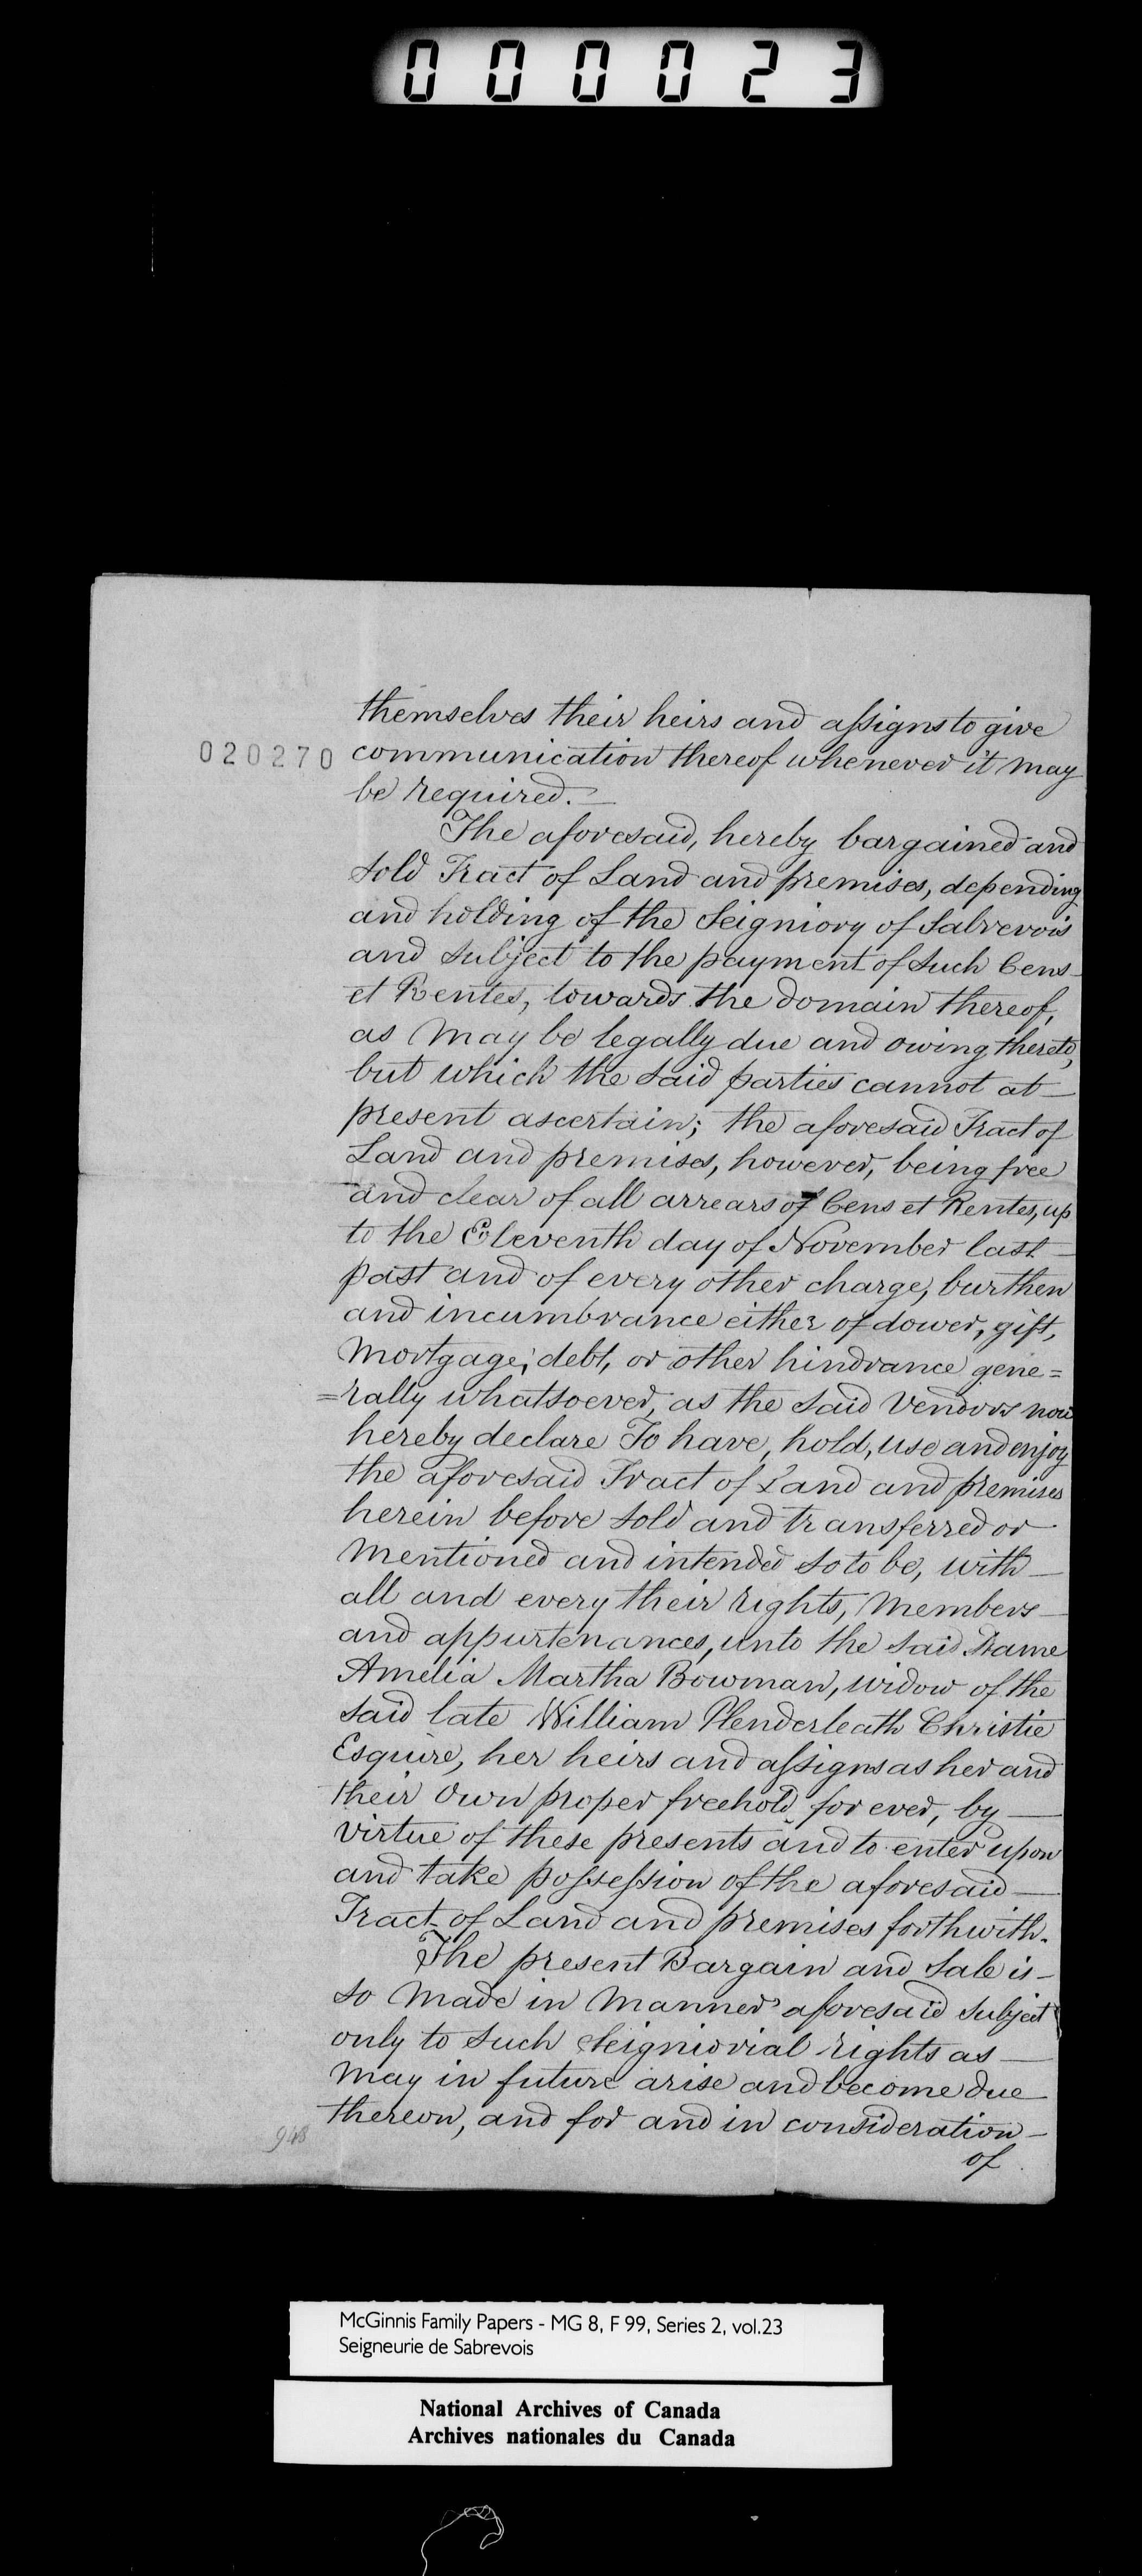 000023
themselves their heirs and assigns to give
020270
communication thereof whenever it may
be required.—
The aforesaid, hereby bargained and
sold Tract of Land and premises, depending
and holding of the Seigniory of Sabrevois
and subject to the payment of such Cens
et Rentes, towards the domain thereof,
as may be legally due and owing thereto,
but which the said parties cannot at—
present ascertain; the aforesaid Tract of
Land and premises, however, being free
and clear of all arrears of Cens et Rentes, up
to the Eleventh day of November last—
past and of every other charge, burthen
and incumbrance either of dower, gift,
mortgage, debt, or other hindrance gene=
=rally whatsoever, as the said Vendors now
hereby declare To have, hold, use and enjoy
the aforesaid Tract of Land and premises
herein before sold and transferred or
mentioned and intended so to be, with—
all and every their rights, members—
and appurtenances, unto the said Dame
Amelia Martha Bowman, widow of the
said late William Plenderleath Christie
Esquire, her heirs and assigns as her and
their own proper freehold for ever, by—
virtue of these presents and to enter upon
and take possession of the aforesaid—
Tract of Land and premises forthwith.
The present Bargain and Sale is—
so made in manner aforesaid subject
only to such Seigniorial rights as—
may in future arise and become due
thereon, and for and in consideration—
of
948
McGinnis Family Papers - MG 8, F 99, Series 2, vol.23
Seigneurie de Sabrevois
National Archives of Canada
Archives nationales du Canada